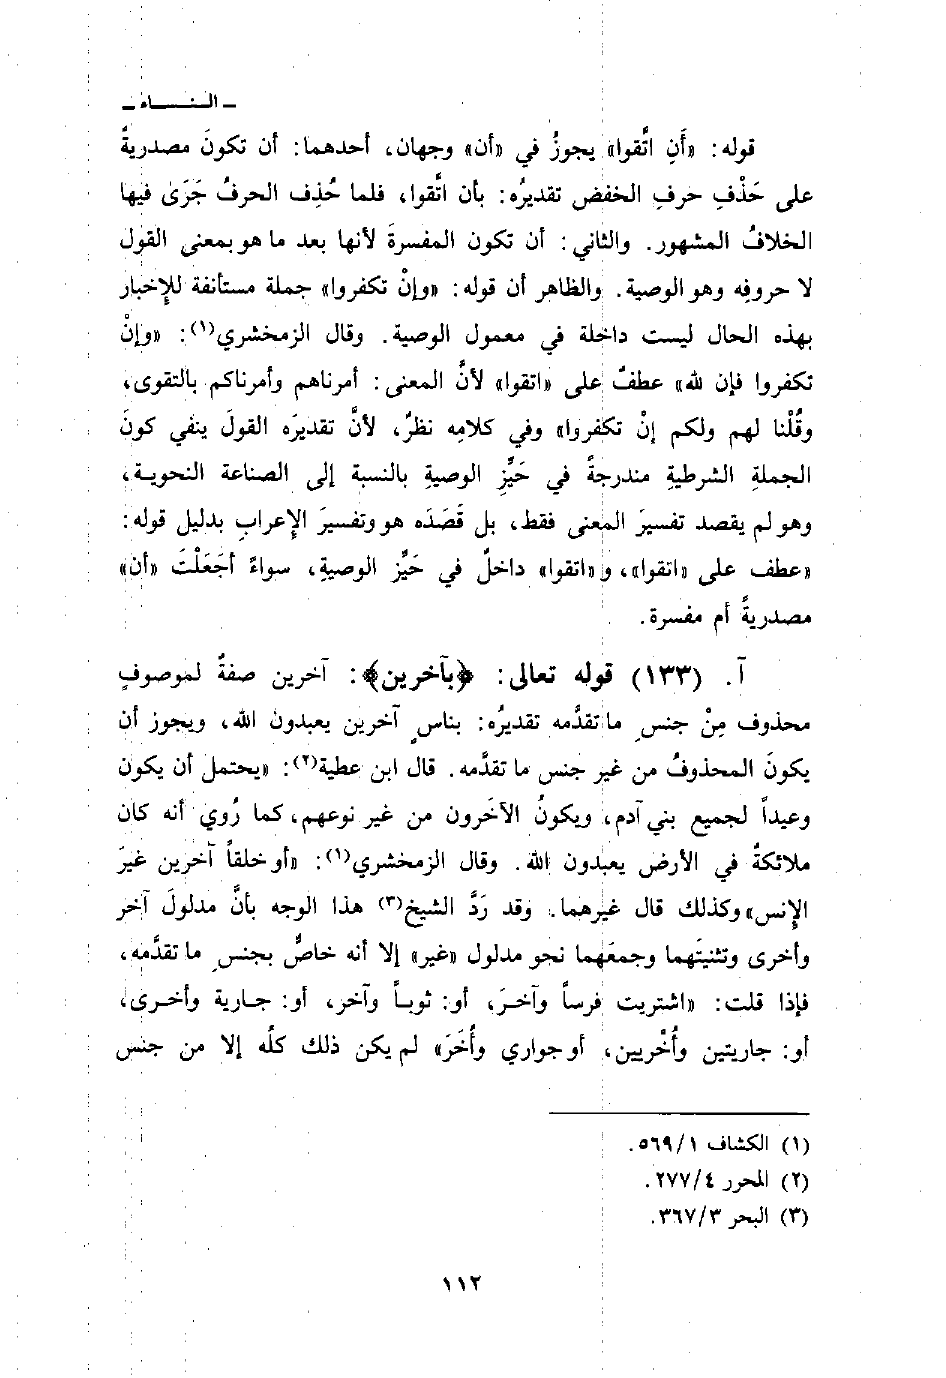 ـ النـــاء ـ
قوله: «أَنِ اتَّقوا» يجوزُ في «أن» وجهان، أحدهما: أن تكونَ مصدريةً
على حَذْفِ حرفِ الخفض تقديرُه: بأن اتَّقوا، فلما حُذِف الحرفُ جَرَىٰ فيها
الخلافُ المشهور. والثاني: أن تكون المفسرةَ لأنها بعد ما هو بمعنى القول
لا حروفِه وهو الوصية. والظاهر أن قوله: «وإنْ تكفروا» جملة مستأنفة للإِخبار
بهذه الحال ليست داخلة في معمول الوصية. وقال الزمخشري(١): «وإنْ
تكفروا فإن لله» عطفٌ على «اتقوا» لأنَّ المعنى: أمرناهم وأمرناكم بالتقوى،
وقُلْنا لهم ولكم إنْ تكفروا» وفي كلامِه نظرٌ، لأنَّ تقديرَه القولَ ينفي كونَ
الجملةِ الشرطيةِ مندرجةً في حَيِّزِ الوصيةِ بالنسبة إلى الصناعة النحوية،
وهو لم يقصد تفسيرَ المعنى فقط، بل قَصَدَه هو وتفسيرَ الإِعرابِ بدليل قوله:
«عطف على «اتقوا»، و«اتقوا» داخلٌ في حَيِّز الوصيةِ، سواءً أجَعَلْتَ «أن»
مصدريةً أم مفسرة.
آ. (١٣٣) قوله تعالى: ﴿بآخرين﴾: آخرين صفةٌ لموصوفٍ
محذوف مِنْ جنسِ ما تقدَّمه تقديرُه: بناسٍ آخرين يعبدون الله، ويجوز أن
يكونَ المحذوفُ من غير جنس ما تقدَّمه. قال ابن عطية(٢): «يحتمل أن يكون
وعيداً لجميع بني آدم، ويكونُ الآخَرون من غير نوعهم، كما رُوي أنه كان
ملائكةٌ في الأرض يعبدون الله. وقال الزمخشري(١): «أو خلقاً آخرين غيرَ
الإِنس» وكذلك قال غيرهما. وقد رَدَّ الشيخ(٣) هذا الوجه بأنَّ مدلولَ آخر
وأخرى وتثنيتَهما وجمعَهما نحو مدلول «غير» إلا أنه خاصٌّ بجنسِ ما تقدَّمه،
فإذا قلت: «اشتريت فرساً وآخرَ، أو: ثوباً وآخر، أو: جارية وأخرى،
أو: جاريتين وأُخْريين، أو جواري وأُخَرَ» لم يكن ذلك كلُّه إلا من جنس
(١) الكشاف ١/٥٦٩.
(٢) المحرر ٤/٢٧٧.
(٣) البحر ٣/٣٦٧.
١١٢